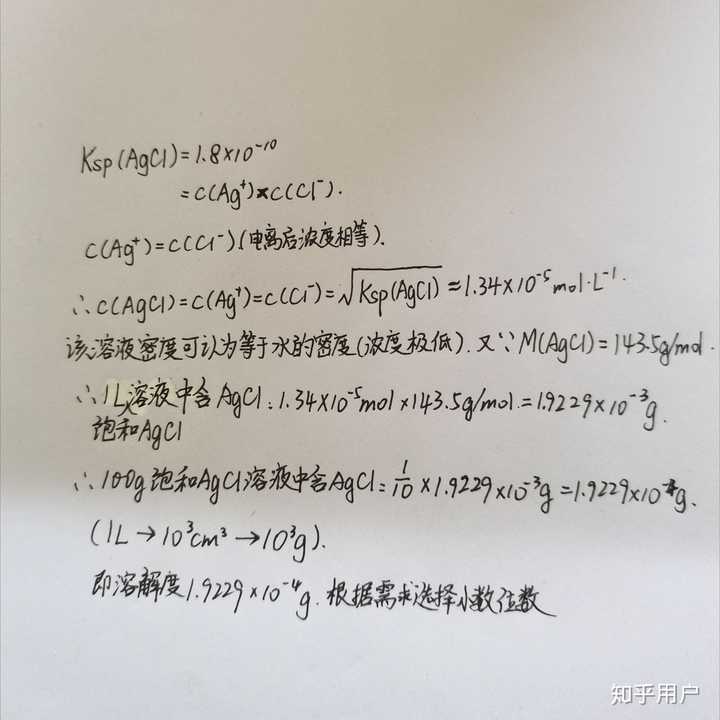 Ksp(AgCl)=1.8×10⁻¹⁰
=c(Ag⁺)×c(Cl⁻).
c(Ag⁺)=c(Cl⁻)(电离后浓度相等).
∴c(AgCl)=c(Ag⁺)=c(Cl⁻)=√Ksp(AgCl)≈1.34×10⁻⁵mol·L⁻¹.
该溶液密度可认为等于水的密度(浓度极低).又∵M(AgCl)=143.5g/mol.
∴1L溶液中含AgCl:1.34×10⁻⁵mol×143.5g/mol=1.9229×10⁻³g.
饱和AgCl
∴100g饱和AgCl溶液中含AgCl=1/10×1.9229×10⁻³g=1.9229×10⁻⁴g.
(1L→10³cm³→10³g).
即溶解度1.9229×10⁻⁴g.根据需求选择小数位数
知乎用户